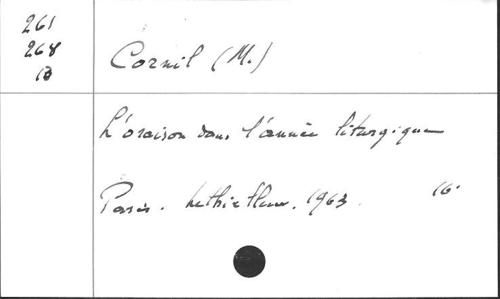 261
268
B
Cornil (M.)
L'oraison dans l'année liturgique
Paris. Lethielleux. 1963. 16°